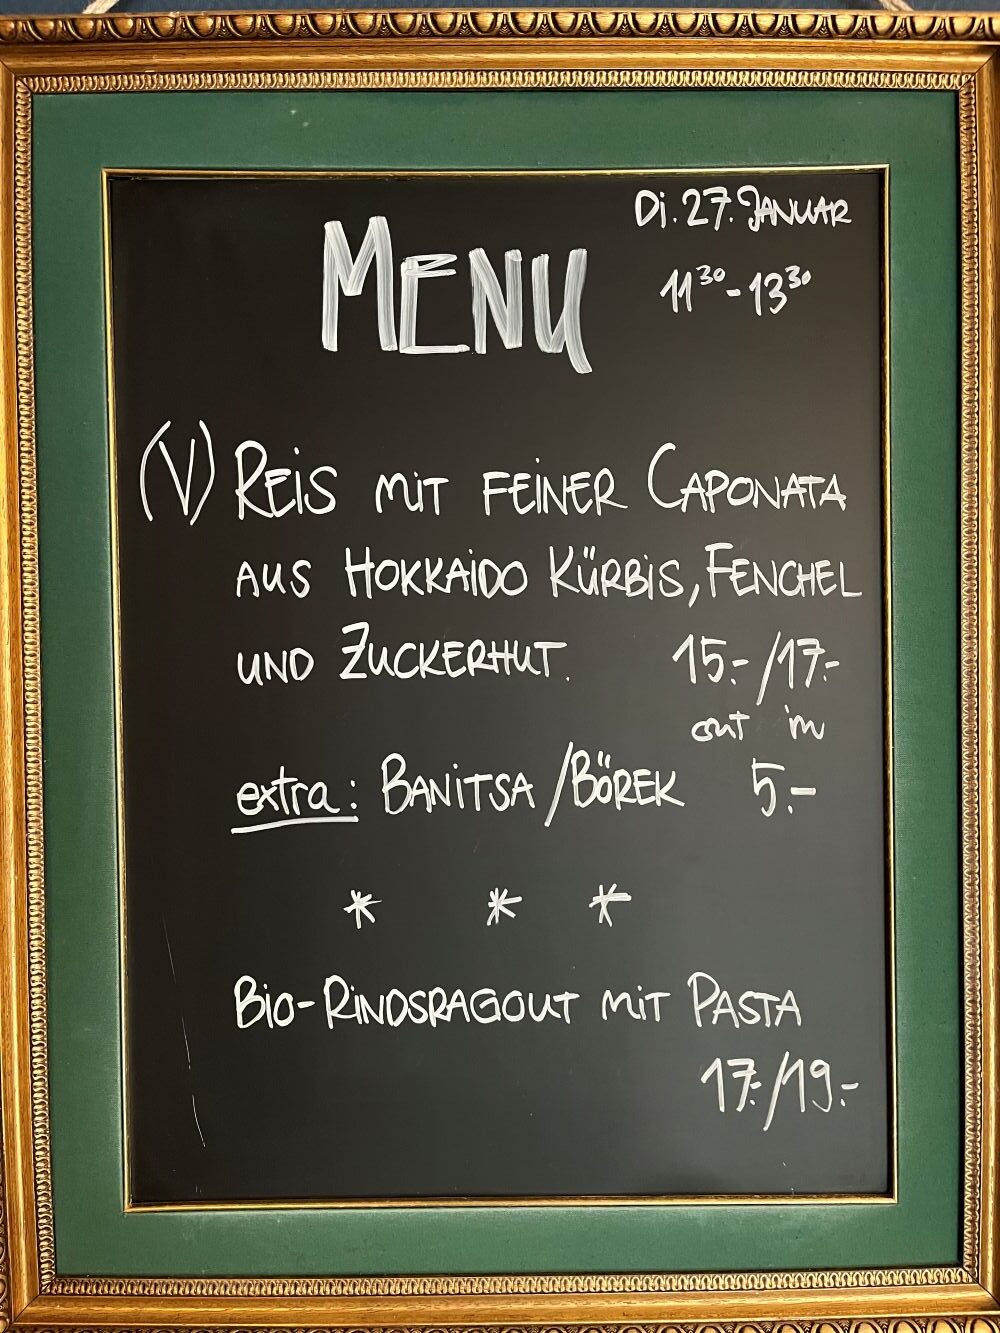 Di. 27. JANUAR
MENU
11³⁰-13³⁰
(V) REIS MIT FEINER CAPONATA
AUS HOKKAIDO KÜRBIS, FENCHEL
UND ZUCKERHUT. 15.-/17.-
out in
extra: BANITSA/BÖREK 5.-
* * *
BIO-RINDSRAGOUT MIT PASTA
17.-/19.-